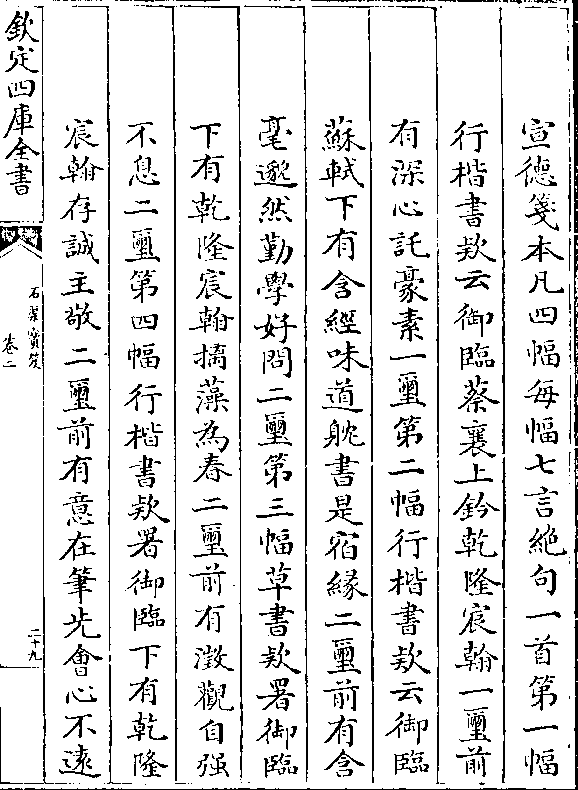 宣德箋本凡四幅每幅七言絶句一首第一幅
行楷書欵云御臨蔡襄上鈐乾隆宸翰一璽前
有深心託豪素一璽第二幅行楷書欵云御臨
蘇軾下有含經味道躭書是宿緣二璽前有含
毫邈然勤學好問二璽第三幅草書欵署御臨
下有乾隆宸翰摛藻為春二璽前有澂觀自强
不息二璽第四幅行楷書欵署御臨下有乾隆
宸翰存誠主敬二璽前有意在筆先會心不遠
欽定四庫全書
石渠寳笈
卷二
二十九